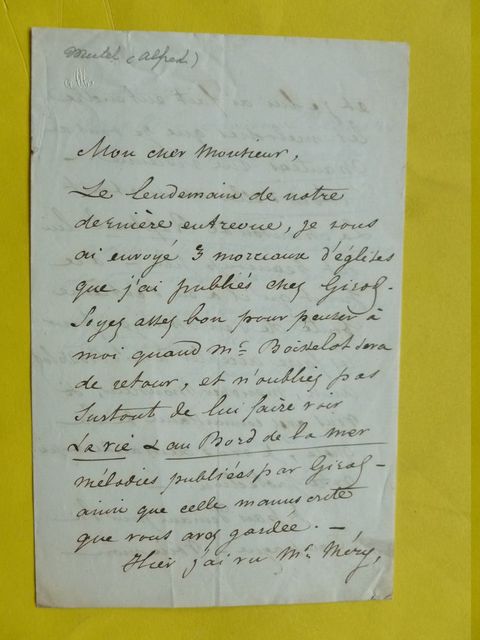 Mutel (Alfred)
AM.
Mon cher Monsieur,
Le lendemain de notre
dernière entrevue, je vous
ai envoyé 3 morceaux d'églises
que j'ai publiés chez Girod -
Soyez assez bon pour penser à
moi quand Mr. Boisselot sera
de retour, et n'oubliez pas
surtout de lui faire voir
La vie & au Bord de la mer
mélodies publiées par Girod -
ainsi que celle manuscrite
que vous avez gardée. -
Hier j'ai vu Mr. Méry,